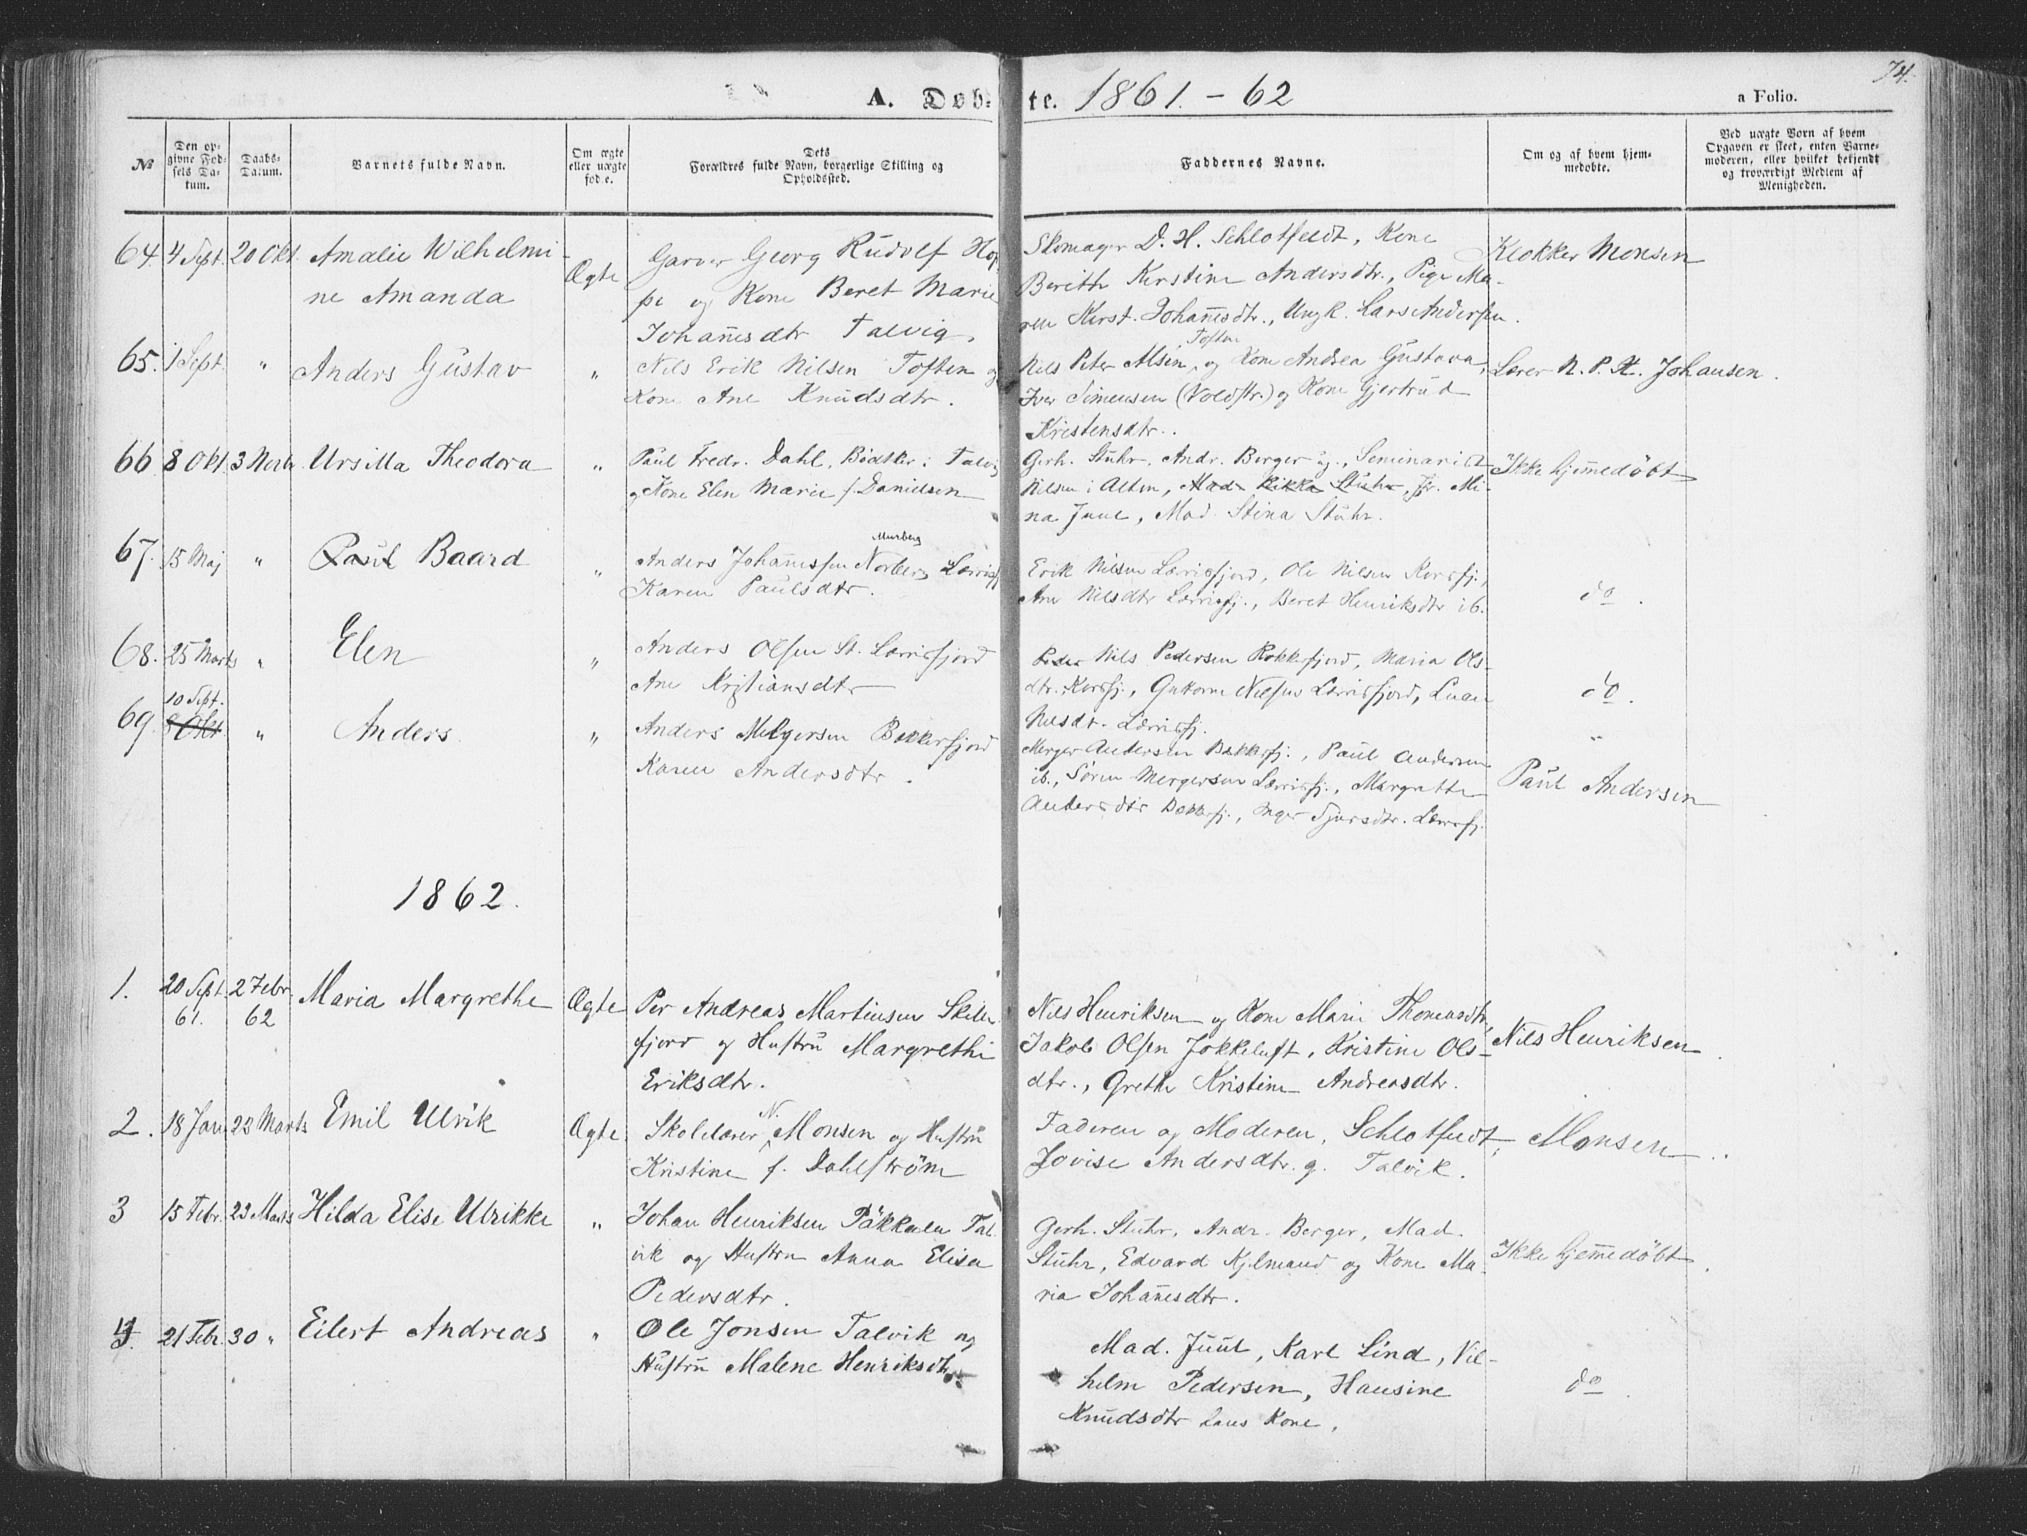 74.
A. Døb- te. 1861. - 62
a Folio.
№
Den op-
givne Fød-
sels Da-
tum.
Daabs-
Datum.
Barnets fulde Navn.
Om ægte
eller uægte
fød e.
Dets
Forældres fulde Navn, borgerlige Stilling og
Opholdssted.
Faddernes Navne.
Om og af hvem hjem-
medøbte.
Ved uægte Born af hvem
Opgaven er skeet, enten Barne-
moderen, eller hvilket bekjendt
og troværdigt Medlem af
Menigheden.
64. 4 Sept. 20 Okt. Amalie Wilhelmi-
ne Amanda
Ægte
Garver Georg Rudolf Hop-
pe og Kone Beret Marie
Johannesdtr Talvig.
Skomager D. H. Schlotfeldt, Kone
Berith Kirstine Andersdtr., Pige Ma-
ren Kirst. Johannesdtr., Ungk. Lars Andersen.
Klokker Monsen
65. 1 Sept. " Anders Gustav "
Nils Erik Nilsen Toften og
Kone Ane Knudsdtr.
Toften
Nils Peter Alsen, og Kone Andrea Gustava,
Iver Simensen (Voldstr.) og Kone Gjertrud
Kristensdtr.
Lærer N. P. H. Johansen.
66 8 Okt. 3 Novbr Ursilla Theodora "
Paul Fredr. Dahl, Bødker i Talvig
og Kone Elen Marie f. Danielsen
Gerh. Stuhr, Andr. Berger og, Seminarist
Nilsen i Alten, Mad. Rikka Stuhr, Jr. Mi-
na Juul, Mad. Stina Stuhr.
Ikke hjemmedøbt
67. 15 Maj " Paul Baard "
Murberg
Anders Johannessen Norberg Lærrisfj
Karen Paulsdtr.
Erik Nilsen Lærrisfjord, Ole Nilsen Korsfj.,
Ane Nilsdtr Lærrisfj., Beret Henriksdtr ib.
do.
68. 25 Marts " Elen "
Anders Olsen St. Lærrisfjord
Ane Kristiansdtr
Peder Nils Pedersen Rokkefjord, Maria Ols-
dtr. Korsfj., Guttorm Nilsen Lærrisfjord,
Nilsdt. Lærrisfj.
do.
10 Sept.
69. 8 Okt. " Anders. "
Anders Mergersen Bekkerfjord
Karen Andersdtr.
Merger Andersen Bekkerfj., Paul Andersen
ib., Søren Mergersen Lærrisfj., Margrethe
Andersdtr Bekkerfj., Inger Sjursdtr. Lærrisfj.
"
Paul Andersen
1862.
1. 20 Sept. 2 Febr. Maria Margrethe Ægte
61. 62
Per Andreas Martinsen Skille-
fjord og Hustru Margrethe
Eriksdtr.
Nils Henriksen og Kone Mari Thomasdtr,
Jakob Olsen Jøkkeluft, Kristine Ols-
dtr., Grethe Kristine Andreasdtr.
Nils Henriksen
2. 18 Jan 23 Marts Emil Ulrik Ægte
Skolelærer N. Monsen og Hustru
Kristine f. Dahlstrøm
Faderen og Moderen, Schlotfeldt,
Jovise Andersdtr. g. Talvik.
Monsen
3 15 Febr. 23 Marts Hilda Elise Ulrikke "
Johan Henriksen Päkkala Tal-
vik og Hustru Anna Elisa
Pedersdtr.
Gerh. Stuhr, Andr. Berger, Mad.
Stuhr, Edvard Kjelmand og Kone Ma-
ria Johannesdtr.
Ikke hjemmedøbt
4. 21 Febr. 30 " Eilert Andreas "
Ole Jonsen Talvik og
Hustru Malene Henriksdtr.
Mad. Juul, Karl Lind, Vil-
helm Pedersen, Hansine
Knudsdtr hans Kone.
do.